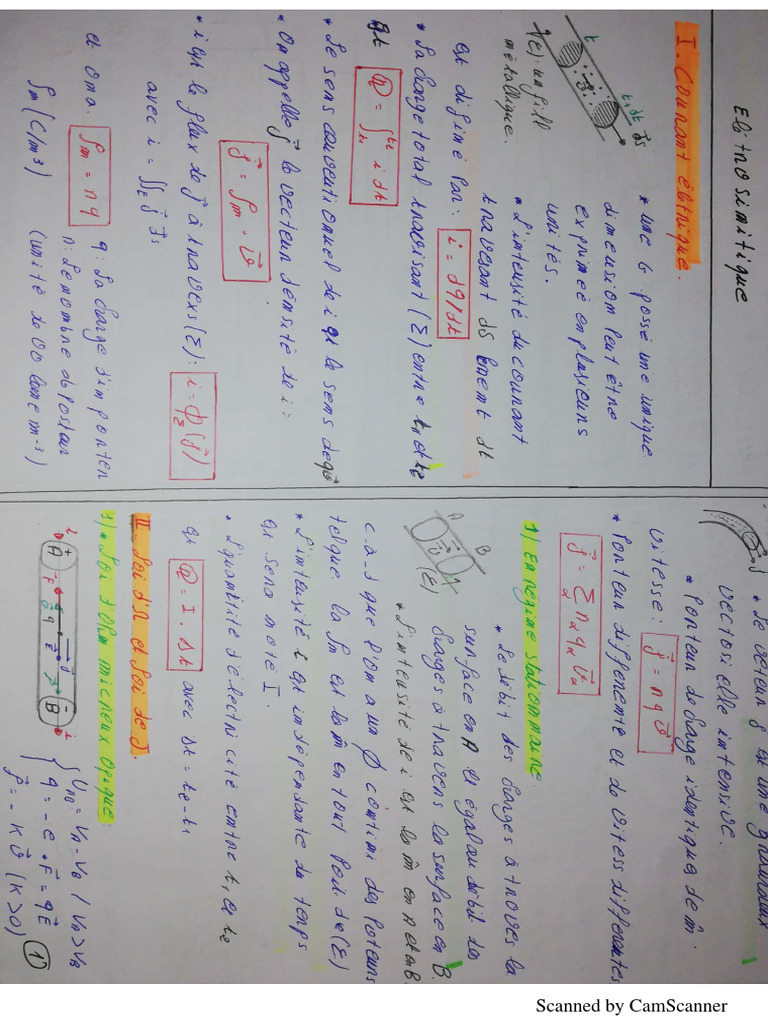 Elitnosimitique
I. Courant életrique.
* une G possè une unique
dimension peut être
exprimée en plusieurs
unités.
t
t+dt
dS
(E): un fil
métallique.
* L'intensité du courant
traversant dS pment dt
est difiné par: i = dq/dt
* La charge total travisant (Σ) entre t1 et t2
est Q = ∫ i dt
* Le sens conventionnel de i est le sens de
* On appelle j le vecteur densité de i:
j = ρm . v
* i est le flux de j à travers (Σ): i = ϕΣ(j)
avec i = ∬Σ j ds
et on a. ρm = nq
q: La charge d'in porten
n: Le nombre de porteur
ρm (C/m³) (unité de volume m⁻³)
* Le vecteur j est une grandeur
vectorielle intensive.
* Porteur de charge identiques de m̂
vitesse: j = nqv
* Porteur differente et de vitess differentes
j = Σα nα qα vα
1) En regime stationnaire
A B
(Σ)
* Le débit des charges à traves la
surface en A est égal au débit des
charges à travers la surface en B.
* L'intensité de i est la m̂ en A et en B.
c.à.d que l'on a un ϕ continu des Porteurs
telque la ρm est la m̂ en tout Point de (Σ)
* L'intensité i est indépendante du temps
et sera noté I.
* L'quantité d'électricité entre t1 et t2
est Q = I . Δt avec Δt = t2 - t1
II. Loi d'Ω et Loi de J.
1) * Loi d'Ohm microscopique:
i + A F q E j B - i
UAB = VA - VB / VA > VB
q = -e . F = qE
f = - K v (K>0)
1
Scanned by CamScanner